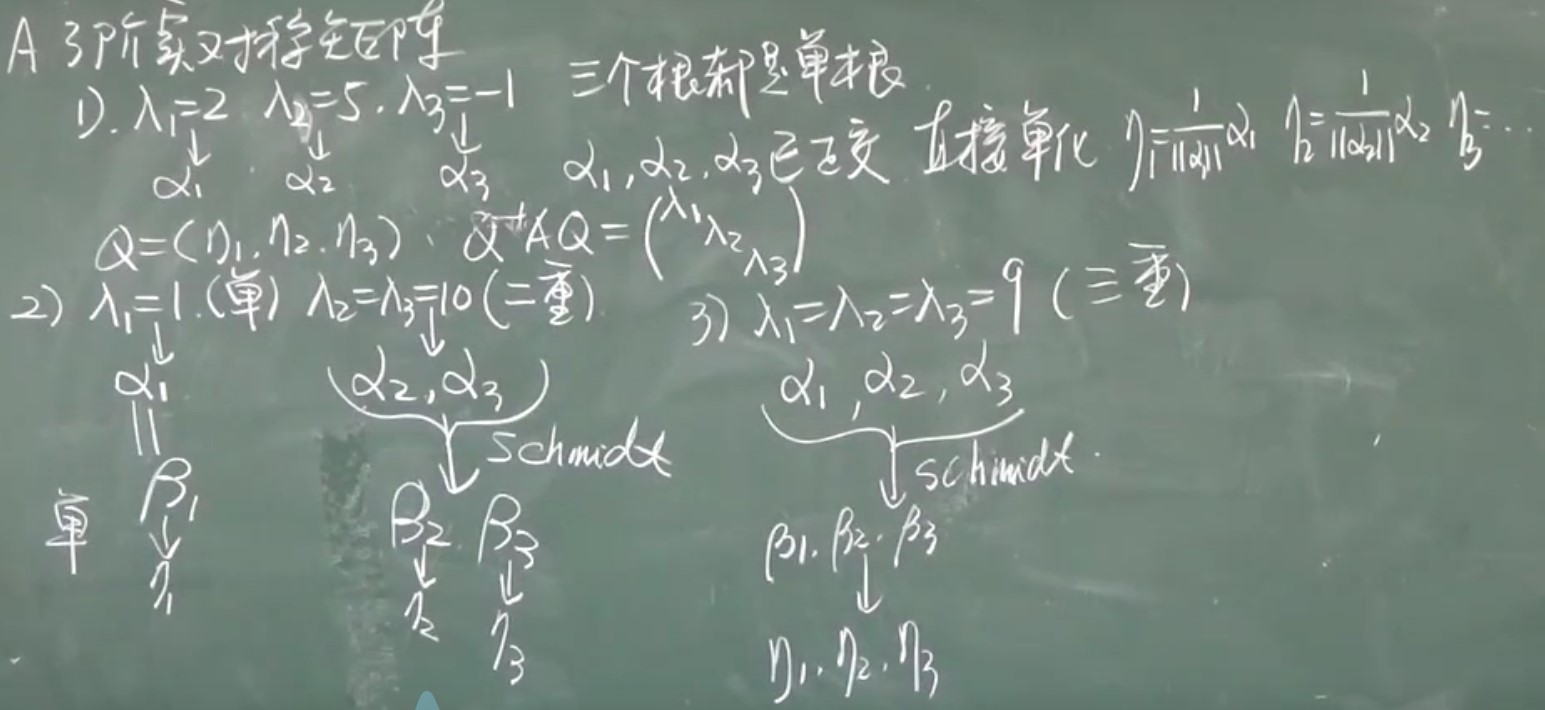 A 3阶实对称矩阵
1). λ₁=2 λ₂=5. λ₃=-1 三个根都是单根.
↓ ↓ ↓
α₁ α₂ α₃ α₁,α₂,α₃已正交 直接单化 η₁=1/||α₁|| α₁ η₂=1/||α₂|| α₂ η₃=...
Q=(η₁.η₂.η₃). Q⁻¹AQ=(λ₁ λ₂ λ₃)
2) λ₁=1.(单) λ₂=λ₃=10(二重)
↓ ↓
α₁ α₂,α₃
|| ↓ schmidt
单 β₁ β₂. β₃
↓ ↓ ↓
η₁ η₂ η₃
3) λ₁=λ₂=λ₃=9 (三重)
α₁,α₂,α₃
↓ schimidt.
β₁.β₂.β₃
↓
η₁.η₂.η₃